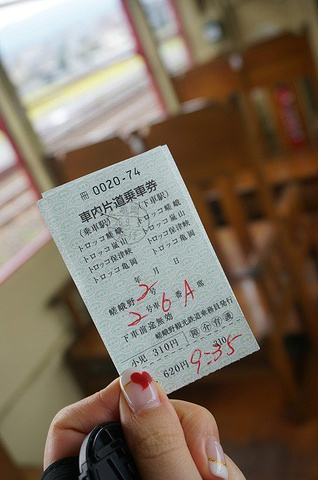 冊 0020-74
車内片道乗車券
(乗車駅) (下車駅)
トロッコ嵯峨 トロッコ嵯峨
トロッコ嵐山 トロッコ嵐山
トロッコ保津峡 トロッコ保津峡
トロッコ亀岡 トロッコ亀岡
年 月 日
嵯峨野 2 号
2 号車 6 番 A 席
下車前途無効
嵯峨野観光鉄道乗務員発行
小児 310円 介 310
620円 9:35